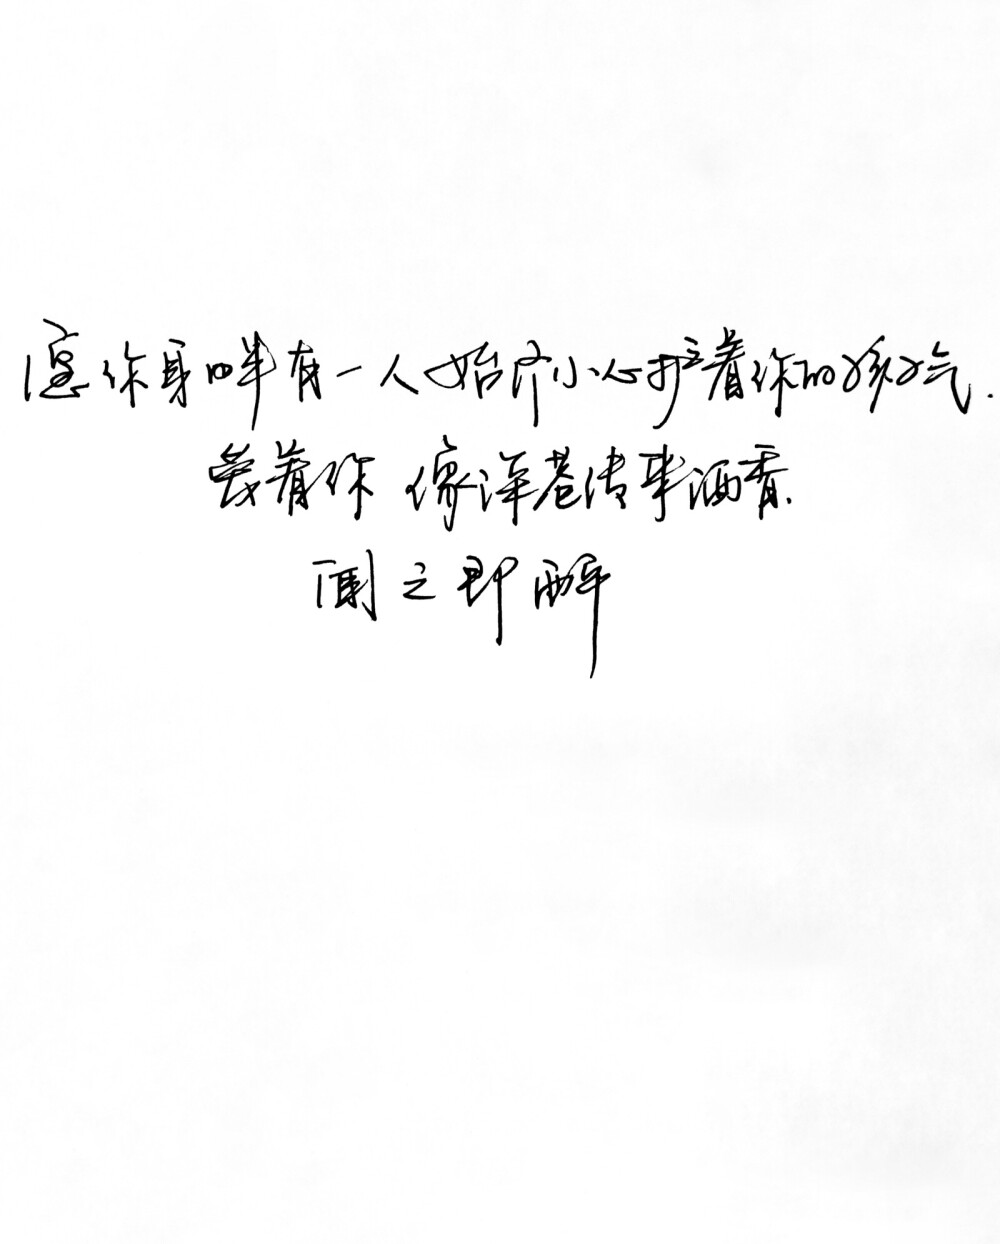 愿你身畔有一人始终小心护着你的孩子气.
爱着你 像深巷传来酒香.
闻之即醉